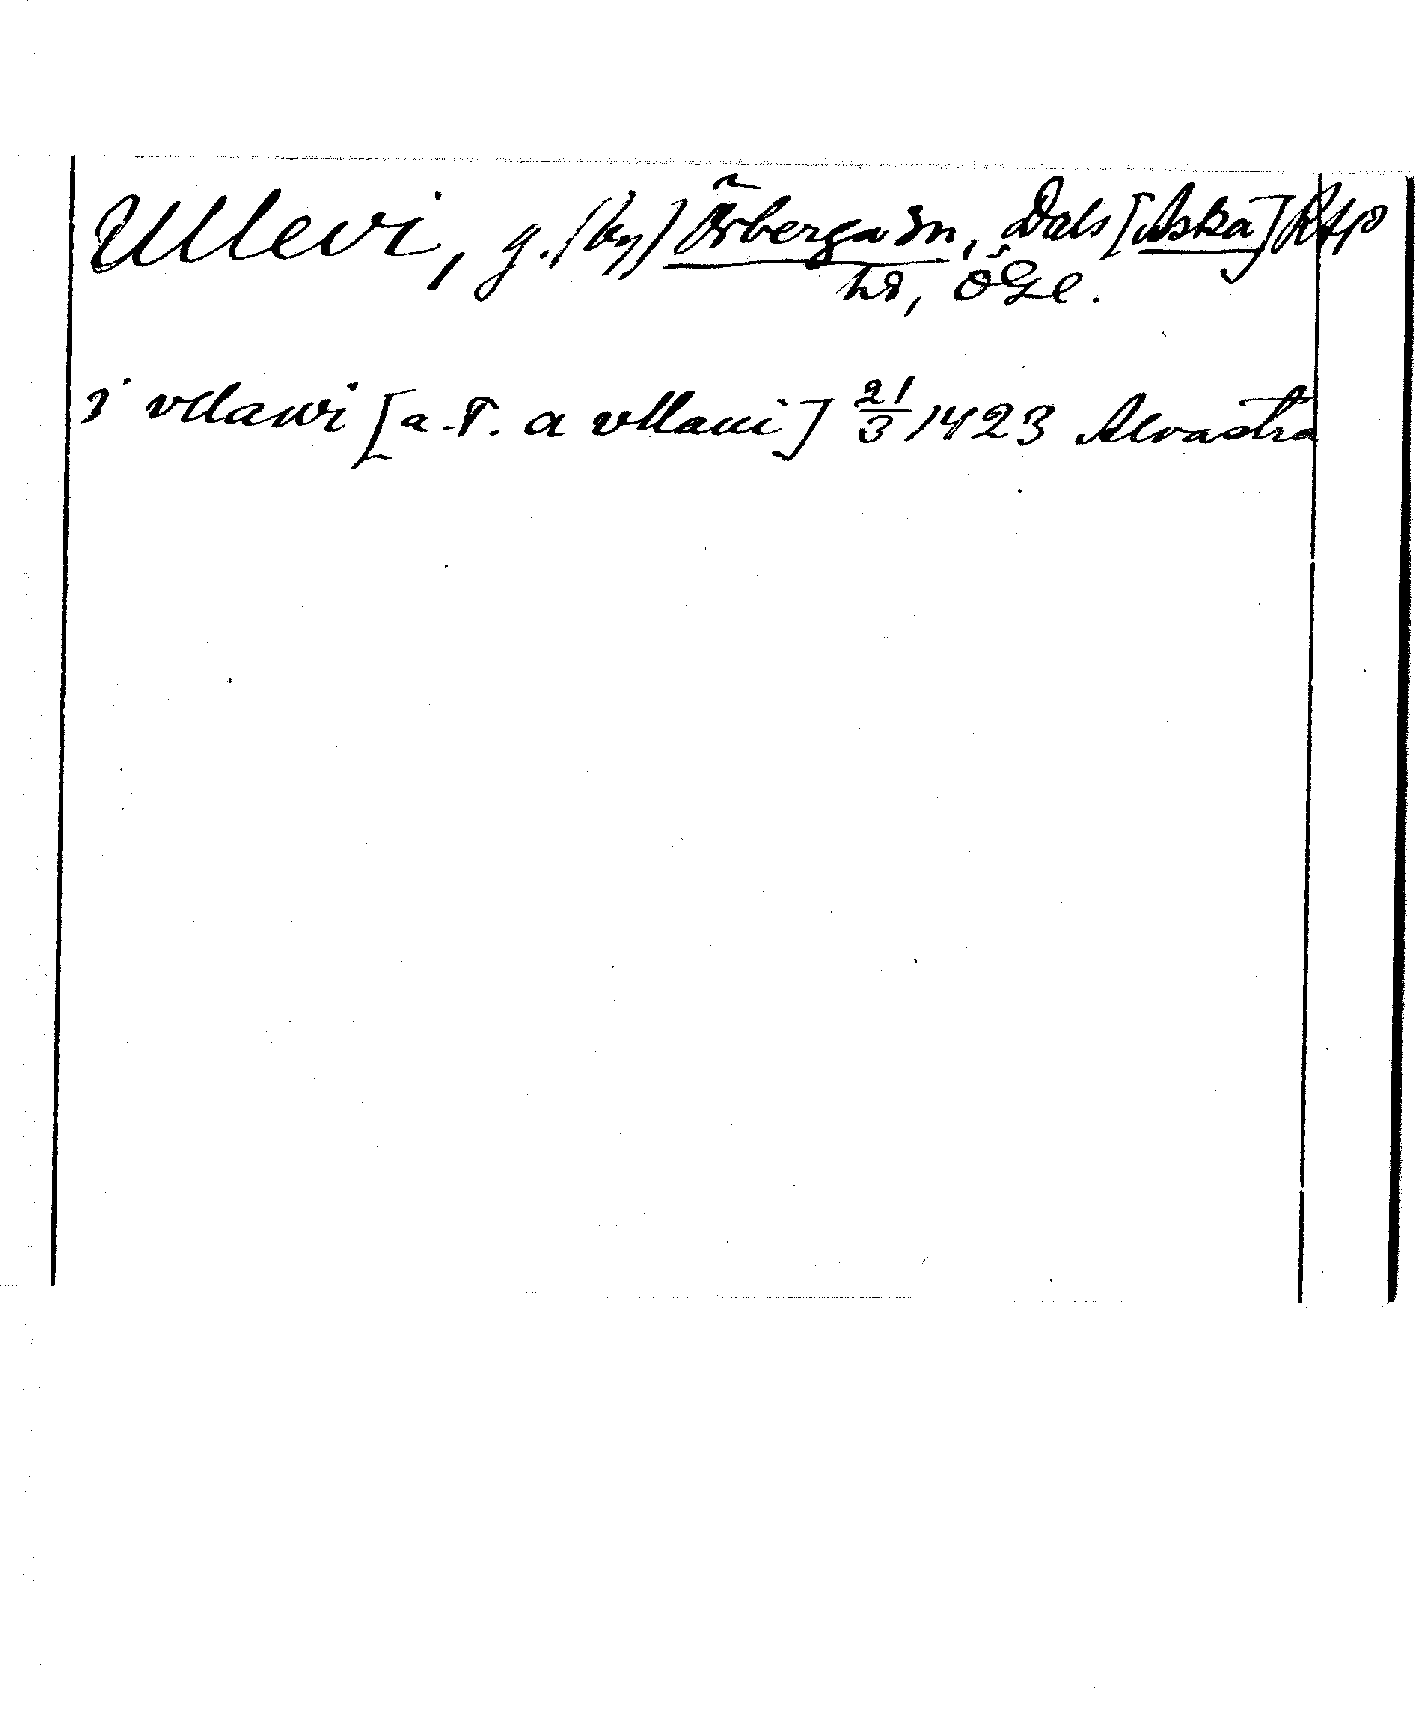 Ullevi, g. (by) Örberga sn, Dals [Aska]
hd, ÖGl.
i vllawi [a.T. a vllaui] 21/3 1423 Alvastra